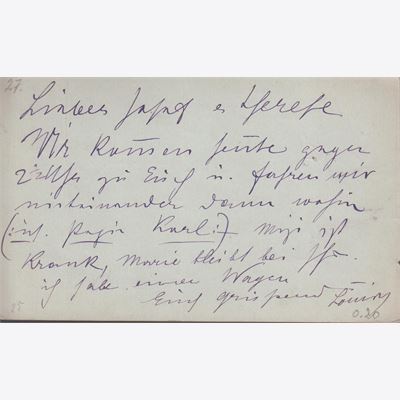 27.
Liebes Josef u Therese
Wir kommen heute gegen
zu Euch u. fahren wir
miteinander dann wohin
(: Karl:) Mizi ist
krank, Marie bleibt bei Ihr.
ich habe einen Wagen
Euch grüssend Louis
85
0.26